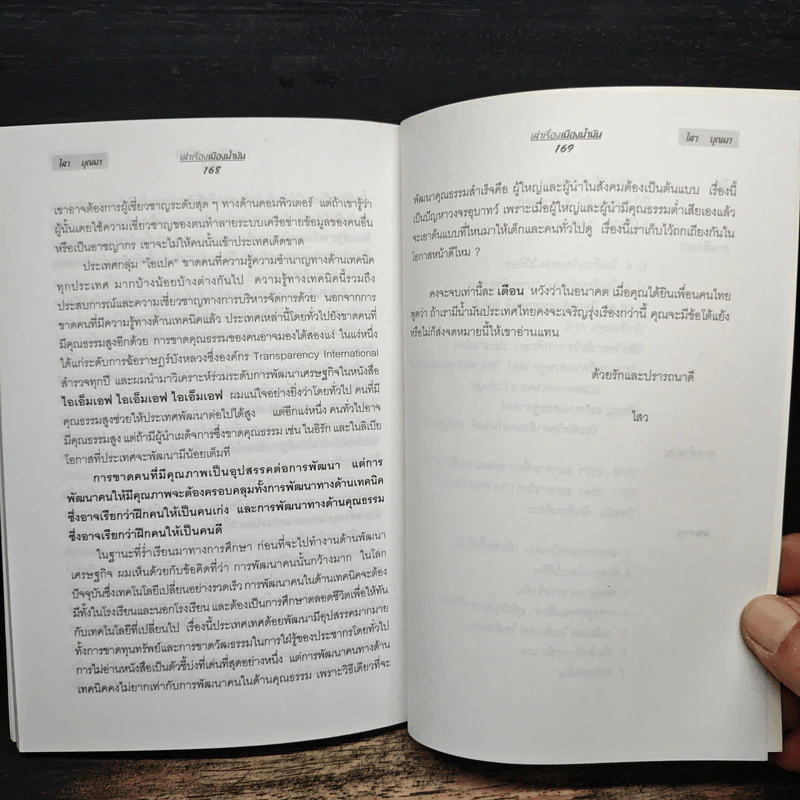 ไสว บุญมา
เล่าเรื่องเมืองน้ำมัน
168
เขาอาจต้องการผู้เชี่ยวชาญระดับสุด ๆ ทางด้านคอมพิวเตอร์ แต่ถ้าเขารู้ว่า
ผู้นั้นเคยใช้ความเชี่ยวชาญของตนทำลายระบบเครือข่ายข้อมูลของคนอื่น
หรือเป็นอาชญากร เขาจะไม่ให้คนนั้นเข้าประเทศเด็ดขาด
ประเทศกลุ่ม "โอเปค" ขาดคนที่ความรู้ความชำนาญทางด้านเทคนิค
ทุกประเทศ มากบ้างน้อยบ้างต่างกันไป ความรู้ทางเทคนิคนี้รวมถึง
ประสบการณ์และความเชี่ยวชาญทางการบริหารจัดการด้วย นอกจากการ
ขาดคนที่มีความรู้ทางด้านเทคนิคแล้ว ประเทศเหล่านี้โดยทั่วไปยังขาดคนที่
มีคุณธรรมสูงอีกด้วย การขาดคุณธรรมของคนอาจมองได้สองแง่ ในแง่หนึ่ง
ได้แก่ระดับการฉ้อราษฎร์บังหลวงซึ่งองค์กร Transparency International
สำรวจทุกปี และผมนำมาวิเคราะห์ร่วมระดับการพัฒนาเศรษฐกิจในหนังสือ
ไอเอ็มเอฟ ไอเอ็มเอฟ ไอเอ็มเอฟ ผมแน่ใจอย่างยิ่งว่าโดยทั่วไป คนที่มี
คุณธรรมสูงช่วยให้ประเทศพัฒนาต่อไปได้สูง แต่อีกแง่หนึ่ง คนทั่วไปอาจ
มีคุณธรรมสูง แต่ถ้ามีผู้นำเผด็จการซึ่งขาดคุณธรรม เช่น ในอิรัก และในลิเบีย
โอกาสที่ประเทศจะพัฒนามีน้อยเต็มที
การขาดคนที่มีคุณภาพเป็นอุปสรรคต่อการพัฒนา แต่การ
พัฒนาคนให้มีคุณภาพจะต้องครอบคลุมทั้งการพัฒนาทางด้านเทคนิค
ซึ่งอาจเรียกว่าฝึกคนให้เป็นคนเก่ง และการพัฒนาทางด้านคุณธรรม
ซึ่งอาจเรียกว่าฝึกคนให้เป็นคนดี
ในฐานะที่ร่ำเรียนมาทางการศึกษา ก่อนที่จะไปทำงานด้านพัฒนา
เศรษฐกิจ ผมเห็นด้วยกับข้อคิดที่ว่า การพัฒนาคนนั้นกว้างมาก ในโลก
ปัจจุบันซึ่งเทคโนโลยีเปลี่ยนอย่างรวดเร็ว การพัฒนาคนในด้านเทคนิคจะต้อง
มีทั้งในโรงเรียนและนอกโรงเรียน และต้องเป็นการศึกษาตลอดชีวิตเพื่อให้ทัน
กับเทคโนโลยีที่เปลี่ยนไป เรื่องนี้ประเทศเทศด้อยพัฒนามีอุปสรรคมากมาย
ทั้งการขาดทุนทรัพย์และการขาดวัฒนธรรมในการใฝ่รู้ของประชากรโดยทั่วไป
การไม่อ่านหนังสือเป็นตัวชี้บ่งที่เด่นที่สุดอย่างหนึ่ง แต่การพัฒนาคนทางด้าน
เทคนิคคงไม่ยากเท่ากับการพัฒนาคนในด้านคุณธรรม เพราะวิธีเดียวที่จะ
เล่าเรื่องเมืองน้ำมัน
169
ไสว บุญมา
พัฒนาคุณธรรมสำเร็จคือ ผู้ใหญ่และผู้นำในสังคมต้องเป็นต้นแบบ เรื่องนี้
เป็นปัญหาวงจรอุบาทว์ เพราะเมื่อผู้ใหญ่และผู้นำมีคุณธรรมต่ำเสียเองแล้ว
จะเอาต้นแบบที่ไหนมาให้เด็กและคนทั่วไปดู เรื่องนี้เราเก็บไว้ถกเถียงกันใน
โอกาสหน้าดีไหม ?
คงจะจบเท่านี้ละ เตือน หวังว่าในอนาคต เมื่อคุณได้ยินเพื่อนคนไทย
พูดว่า ถ้าเรามีน้ำมันประเทศไทยคงจะเจริญรุ่งเรืองกว่านี้ คุณจะมีข้อโต้แย้ง
หรือไม่ก็ส่งจดหมายนี้ให้เขาอ่านแทน
ด้วยรักและปรารถนาดี
ไสว